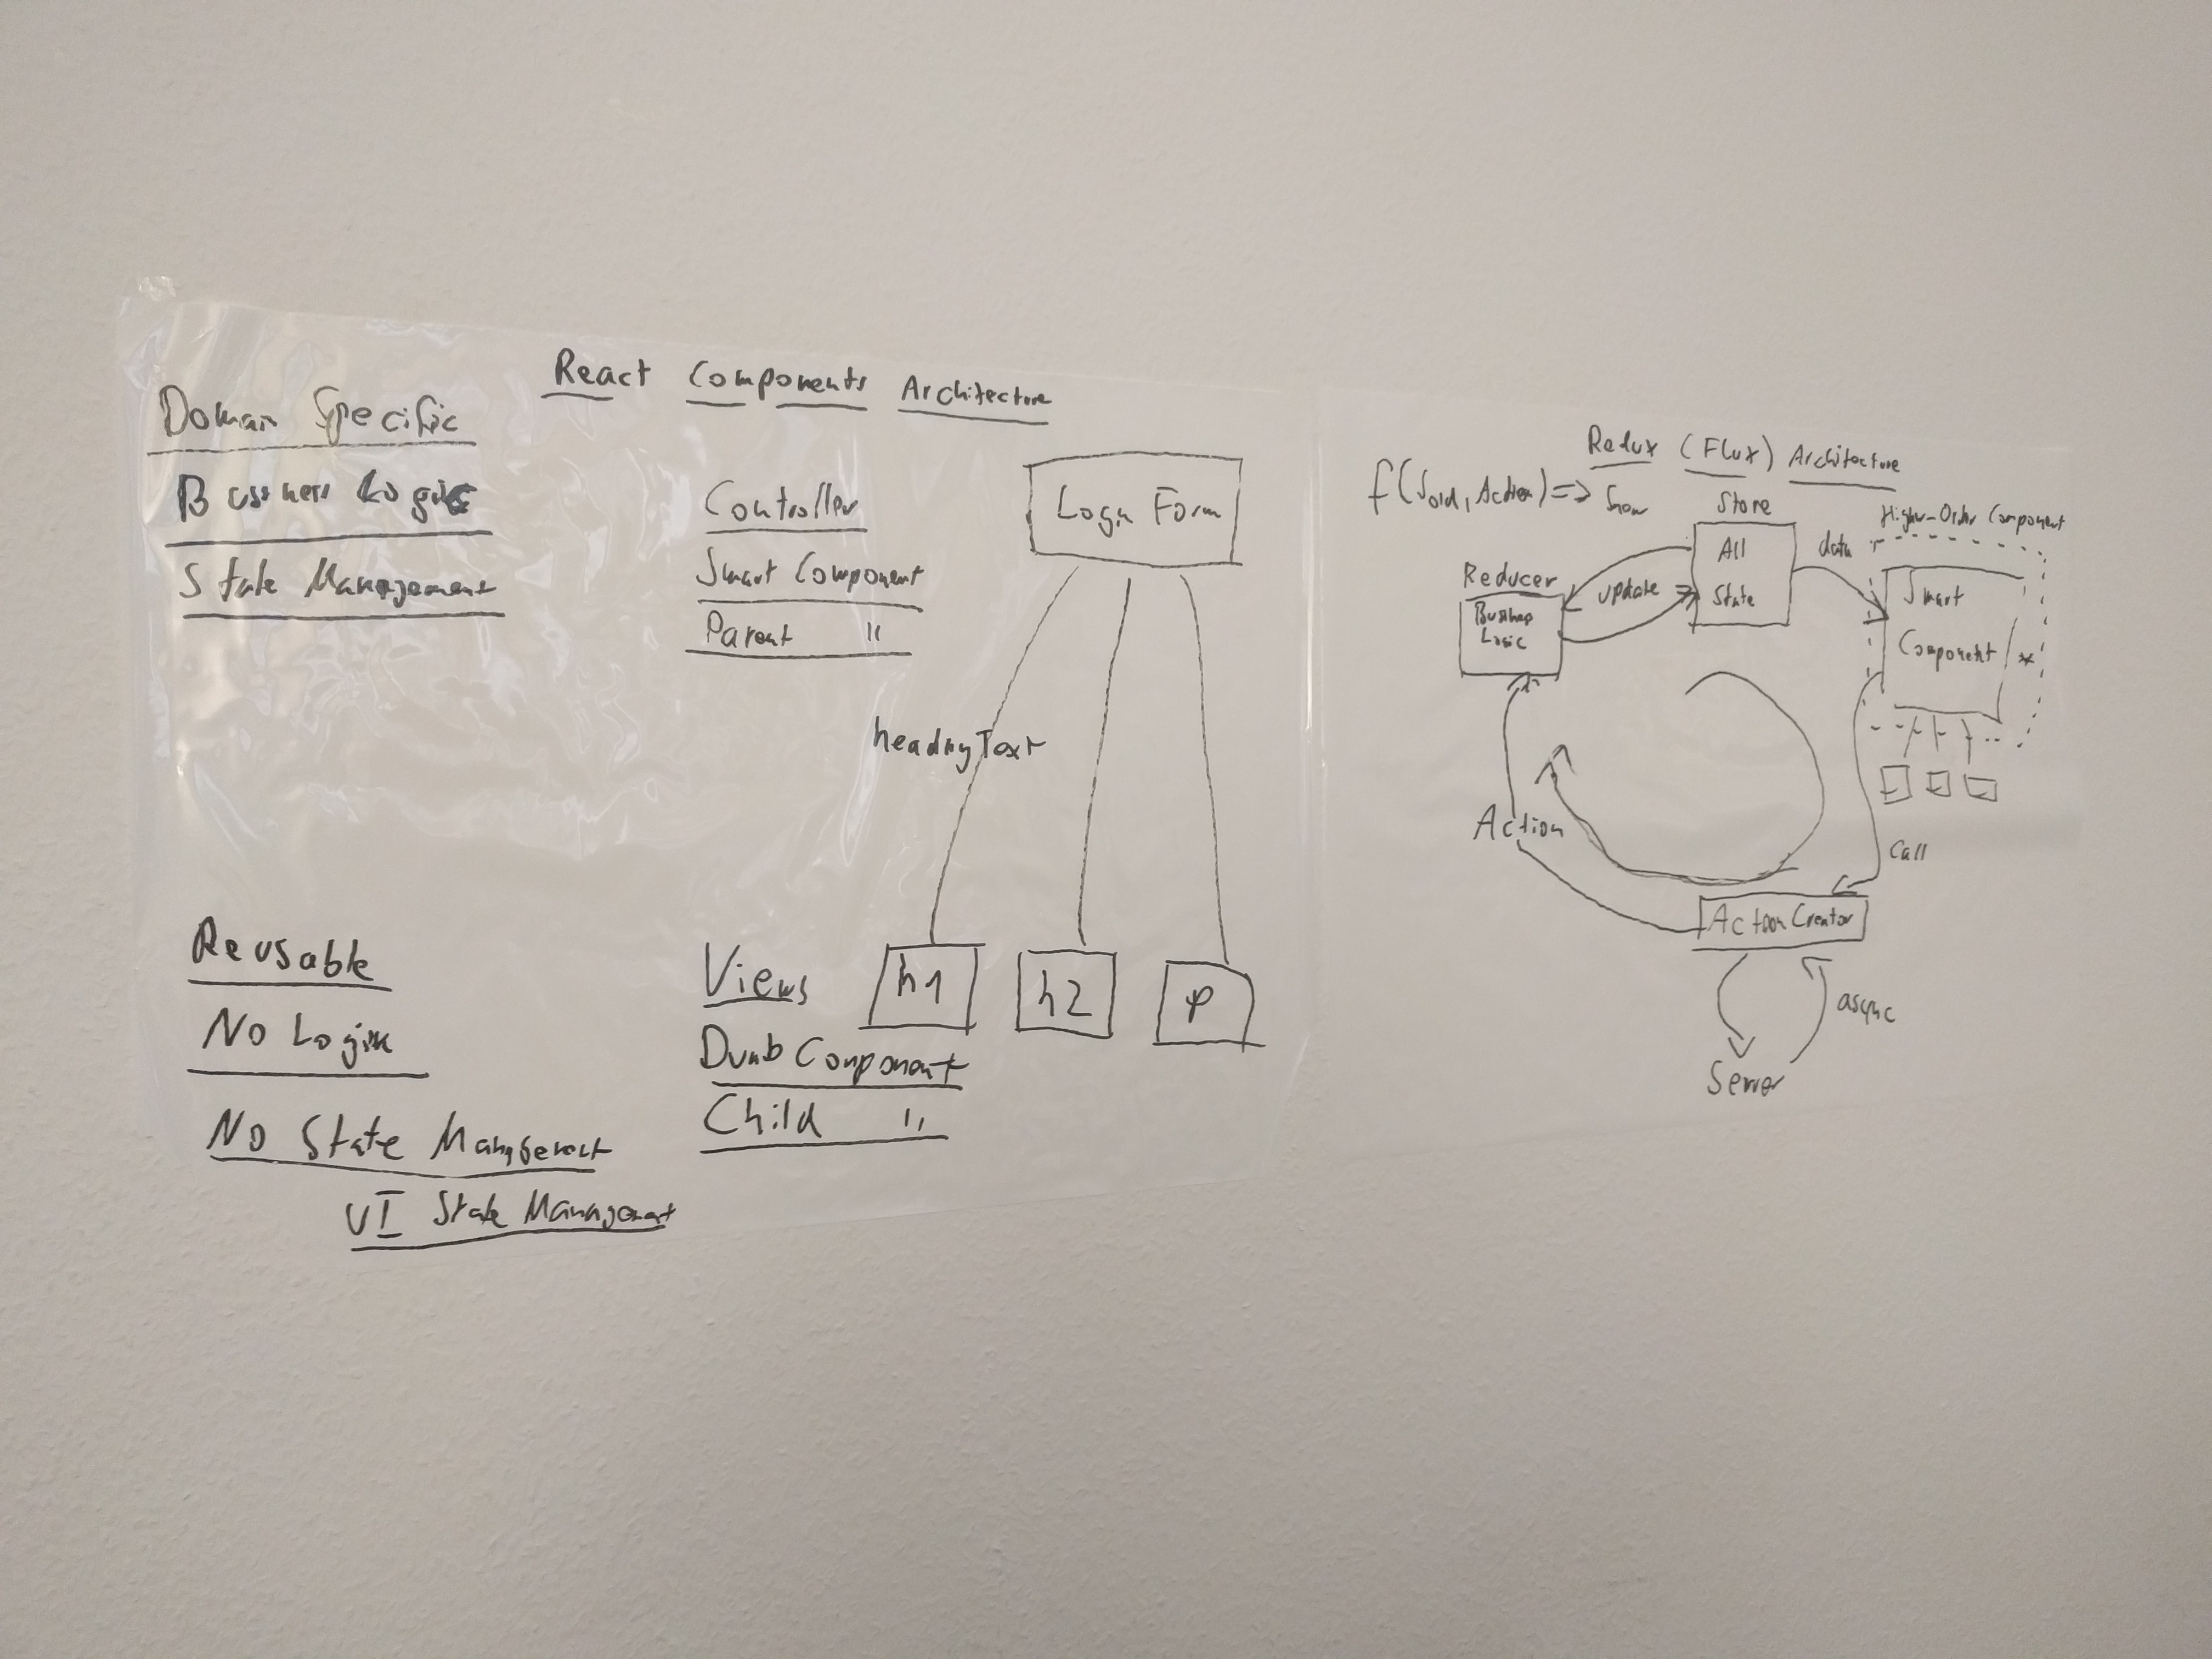 React Components Architecture
Domain Specific
Business Logic
State Management
Controller
Smart Component
Parent "
Login Form
headingText
Reusable
No Logik
No State Management
UI State Management
Views
Dumb Component
Child "
h1
h2
p
Redux (Flux) Architecture
f(Sold, Action) => Snew
Store
All
State
Higher-Order Component
data
Smart
Component
*
Reducer
Business
Logic
update
Action
Call
Action Creator
async
Server